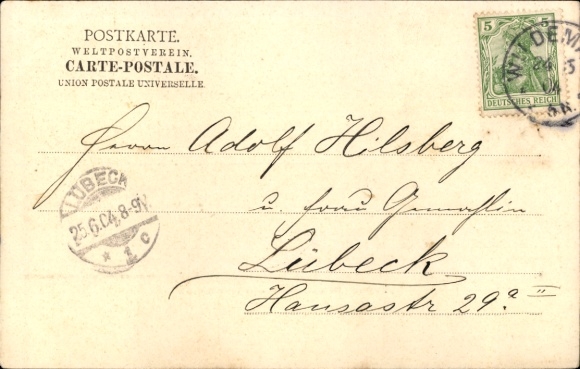 POSTKARTE.
WELTPOSTVEREIN.
CARTE-POSTALE.
UNION POSTALE UNIVERSELLE.
5 5
DEUTSCHES REICH
04
Herrn Adolf Hilsberg
u. Frau Gemahlin
Lübeck
Hansastr 29a II
LÜBECK
25.6.04. 8-9V
* 1 c